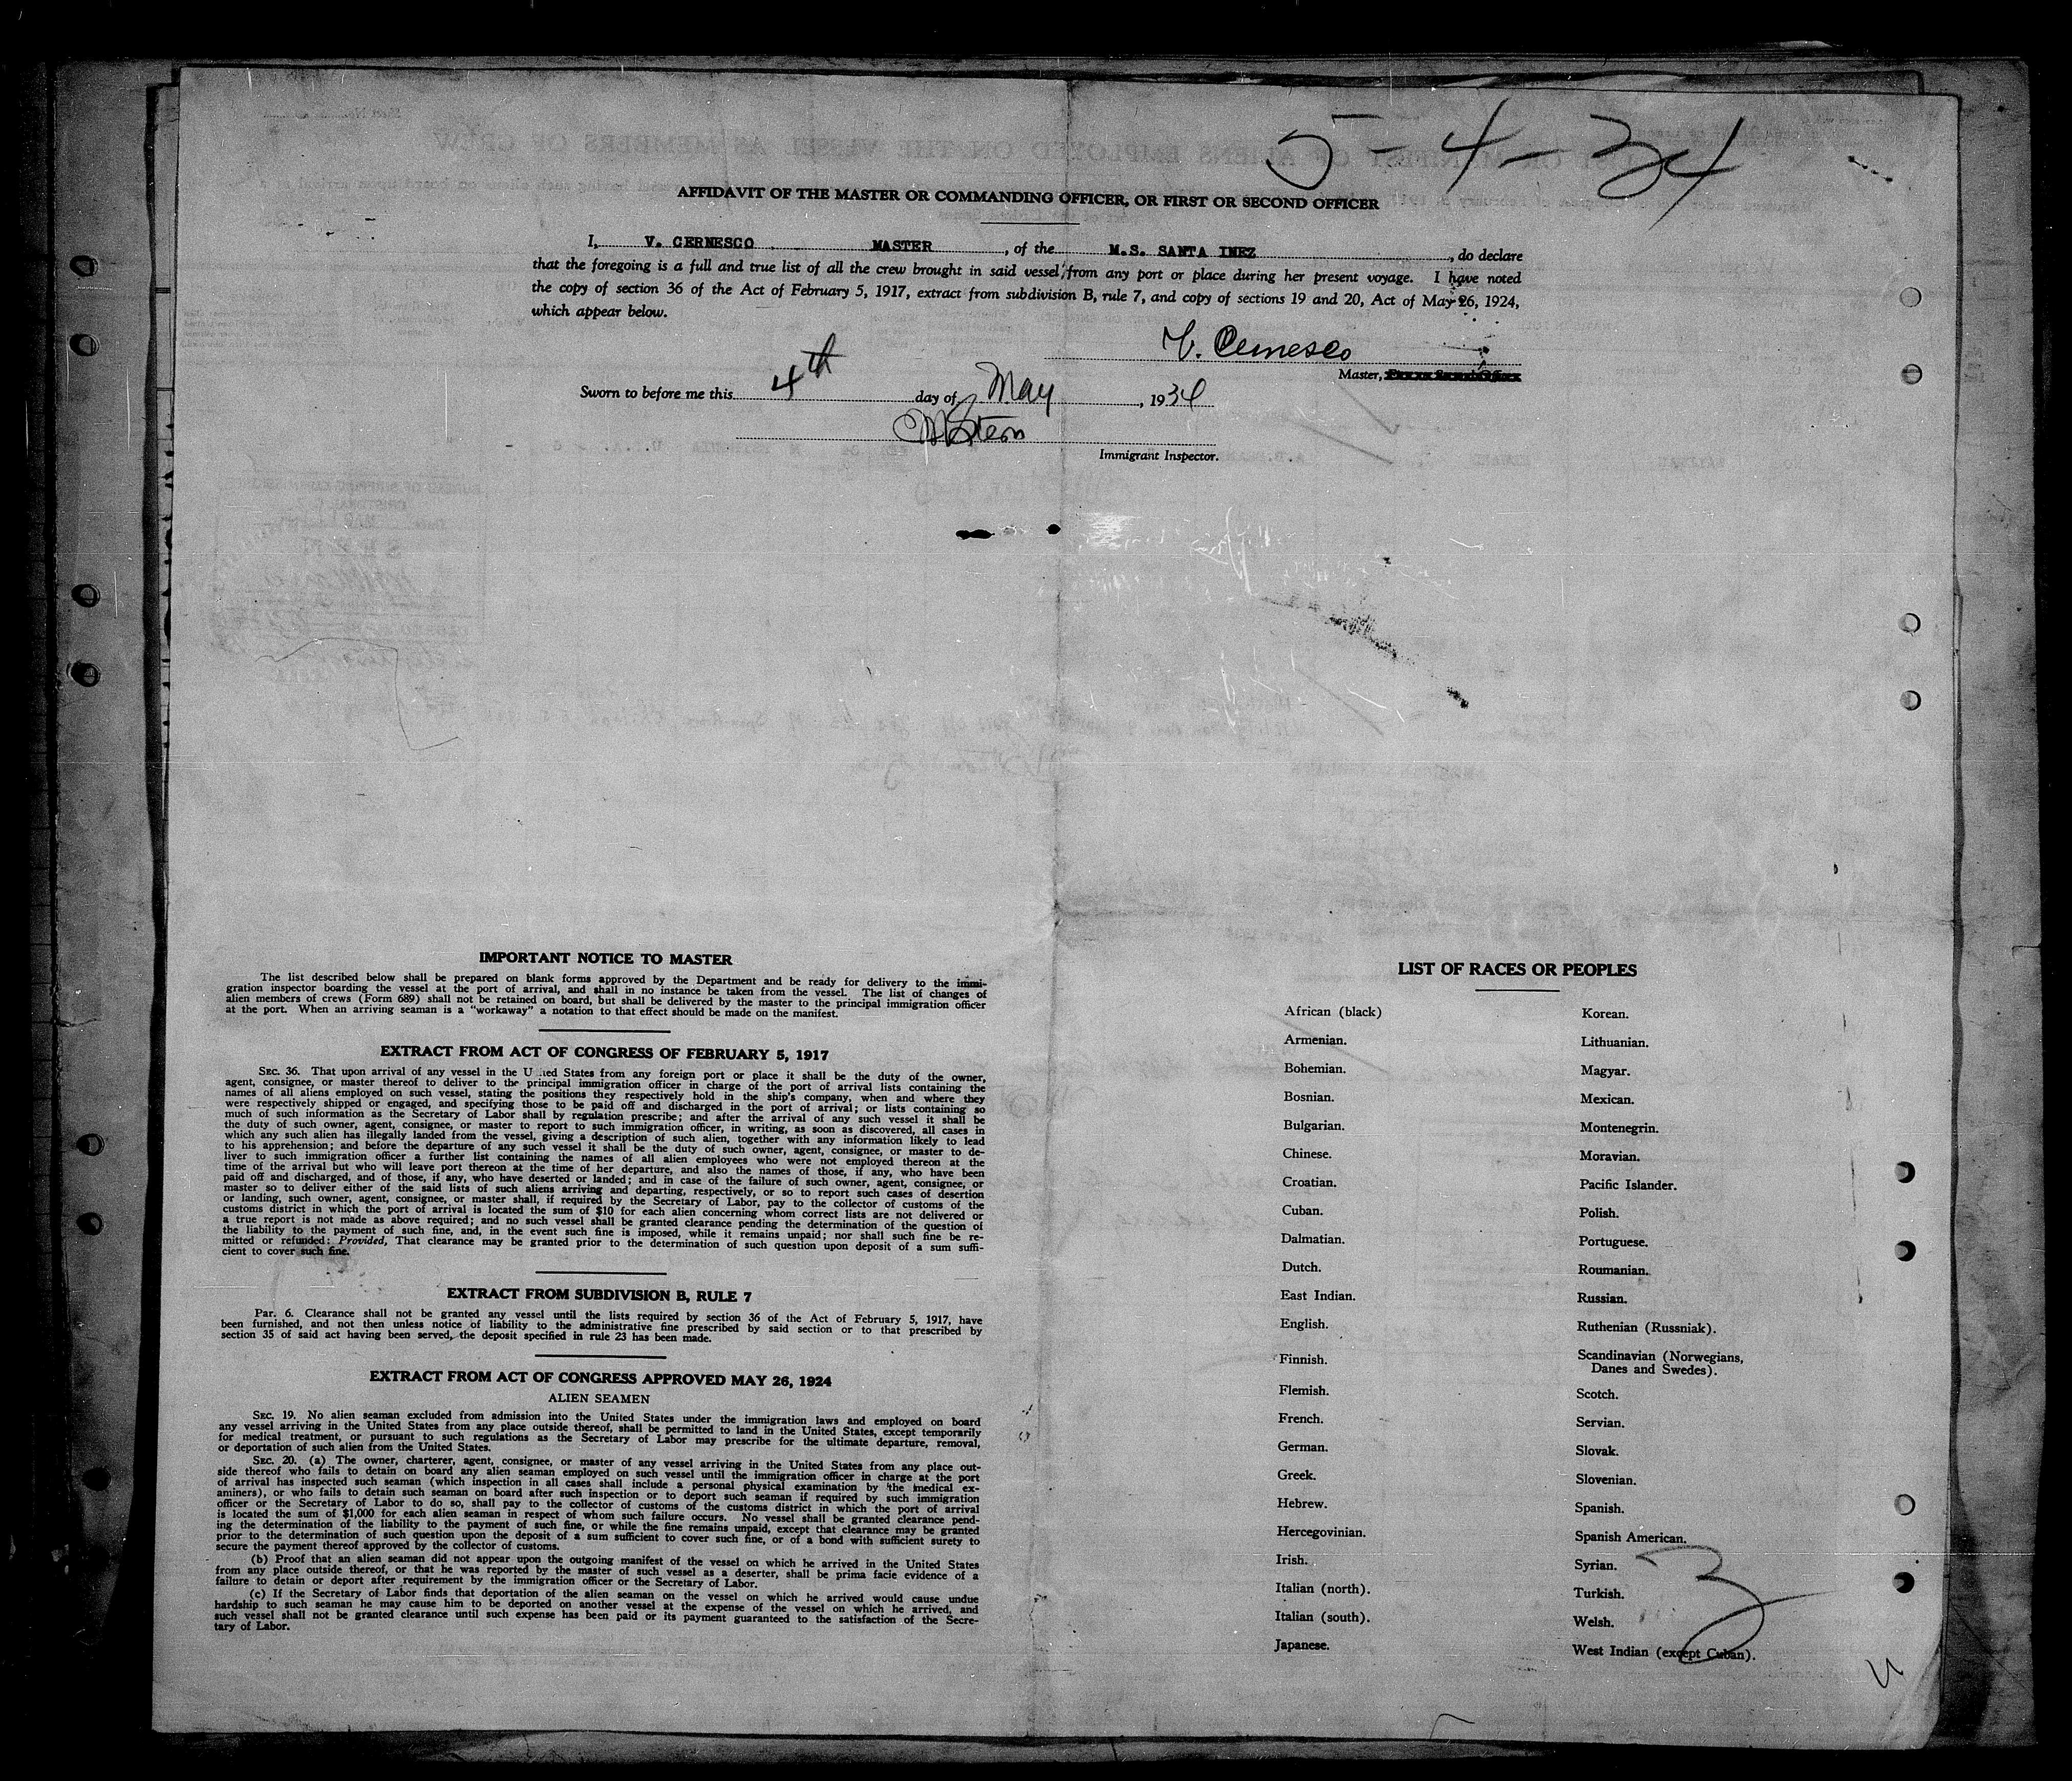 5-4-34
AFFIDAVIT OF THE MASTER OR COMMANDING OFFICER, OR FIRST OR SECOND OFFICER
I, V. CERNESCO MASTER, of the M.S. SANTA INEZ, do declare
that the foregoing is a full and true list of all the crew brought in said vessel from any port or place during her present voyage. I have noted
the copy of section 36 of the Act of February 5, 1917, extract from subdivision B, rule 7, and copy of sections 19 and 20, Act of May 26, 1924,
which appear below.
V. Cernesco
Master,
Sworn to before me this 4th day of May, 1934
Stern
Immigrant Inspector.
IMPORTANT NOTICE TO MASTER
The list described below shall be prepared on blank forms approved by the Department and be ready for delivery to the immi-
gration inspector boarding the vessel at the port of arrival, and shall in no instance be taken from the vessel. The list of changes of
alien members of crews (Form 689) shall not be retained on board, but shall be delivered by the master to the principal immigration officer
at the port. When an arriving seaman is a "workaway" a notation to that effect should be made on the manifest.
EXTRACT FROM ACT OF CONGRESS OF FEBRUARY 5, 1917
SEC. 36. That upon arrival of any vessel in the United States from any foreign port or place it shall be the duty of the owner,
agent, consignee, or master thereof to deliver to the principal immigration officer in charge of the port of arrival lists containing the
names of all aliens employed on such vessel, stating the positions they respectively hold in the ship's company, when and where they
were respectively shipped or engaged, and specifying those to be paid off and discharged in the port of arrival; or lists containing so
much of such information as the Secretary of Labor shall by regulation prescribe; and after the arrival of any such vessel it shall be
the duty of such owner, agent, consignee, or master to report to such immigration officer, in writing, as soon as discovered, all cases in
which any such alien has illegally landed from the vessel, giving a description of such alien, together with any information likely to lead
to his apprehension; and before the departure of any such vessel it shall be the duty of such owner, agent, consignee, or master to de-
liver to such immigration officer a further list containing the names of all alien employees who were not employed thereon at the
time of the arrival but who will leave port thereon at the time of her departure, and also the names of those, if any, who have been
paid off and discharged, and of those, if any, who have deserted or landed; and in case of the failure of such owner, agent, consignee, or
master so to deliver either of the said lists of such aliens arriving and departing, respectively, or so to report such cases of desertion
or landing, such owner, agent, consignee, or master shall, if required by the Secretary of Labor, pay to the collector of customs of the
customs district in which the port of arrival is located the sum of $10 for each alien concerning whom correct lists are not delivered or
a true report is not made as above required; and no such vessel shall be granted clearance pending the determination of the question of
the liability to the payment of such fine, and, in the event such fine is imposed, while it remains unpaid; nor shall such fine be re-
mitted or refunded: Provided, That clearance may be granted prior to the determination of such question upon deposit of a sum suffi-
cient to cover such fine.
EXTRACT FROM SUBDIVISION B, RULE 7
Par. 6. Clearance shall not be granted any vessel until the lists required by section 36 of the Act of February 5, 1917, have
been furnished, and not then unless notice of liability to the administrative fine prescribed by said section or to that prescribed by
section 35 of said act having been served, the deposit specified in rule 23 has been made.
EXTRACT FROM ACT OF CONGRESS APPROVED MAY 26, 1924
ALIEN SEAMEN
SEC. 19. No alien seaman excluded from admission into the United States under the immigration laws and employed on board
any vessel arriving in the United States from any place outside thereof, shall be permitted to land in the United States, except temporarily
for medical treatment, or pursuant to such regulations as the Secretary of Labor may prescribe for the ultimate departure, removal,
or deportation of such alien from the United States.
SEC. 20. (a) The owner, charterer, agent, consignee, or master of any vessel arriving in the United States from any place out-
side thereof who fails to detain on board any alien seaman employed on such vessel until the immigration officer in charge at the port
of arrival has inspected such seaman (which inspection in all cases shall include a personal physical examination by the medical ex-
aminers), or who fails to detain such seaman on board after such inspection or to deport such seaman if required by such immigration
officer or the Secretary of Labor to do so, shall pay to the collector of customs of the customs district in which the port of arrival
is located the sum of $1,000 for each alien seaman in respect of whom such failure occurs. No vessel shall be granted clearance pend-
ing the determination of the liability to the payment of such fine, or while the fine remains unpaid, except that clearance may be granted
prior to the determination of such question upon the deposit of a sum sufficient to cover such fine, or of a bond with sufficient surety to
secure the payment thereof approved by the collector of customs.
(b) Proof that an alien seaman did not appear upon the outgoing manifest of the vessel on which he arrived in the United States
from any place outside thereof, or that he was reported by the master of such vessel as a deserter, shall be prima facie evidence of a
failure to detain or deport after requirement by the immigration officer or the Secretary of Labor.
(c) If the Secretary of Labor finds that deportation of the alien seaman on the vessel on which he arrived would cause undue
hardship to such seaman he may cause him to be deported on another vessel at the expense of the vessel on which he arrived, and
such vessel shall not be granted clearance until such expense has been paid or its payment guaranteed to the satisfaction of the Secre-
tary of Labor.
LIST OF RACES OR PEOPLES
African (black)
Armenian.
Bohemian.
Bosnian.
Bulgarian.
Chinese.
Croatian.
Cuban.
Dalmatian.
Dutch.
East Indian.
English.
Finnish.
Flemish.
French.
German.
Greek.
Hebrew.
Hercegovinian.
Irish.
Italian (north).
Italian (south).
Japanese.
Korean.
Lithuanian.
Magyar.
Mexican.
Montenegrin.
Moravian.
Pacific Islander.
Polish.
Portuguese.
Roumanian.
Russian.
Ruthenian (Russniak).
Scandinavian (Norwegians,
Danes and Swedes).
Scotch.
Servian.
Slovak.
Slovenian.
Spanish.
Spanish American.
Syrian.
Turkish.
Welsh.
West Indian (except Cuban).
3